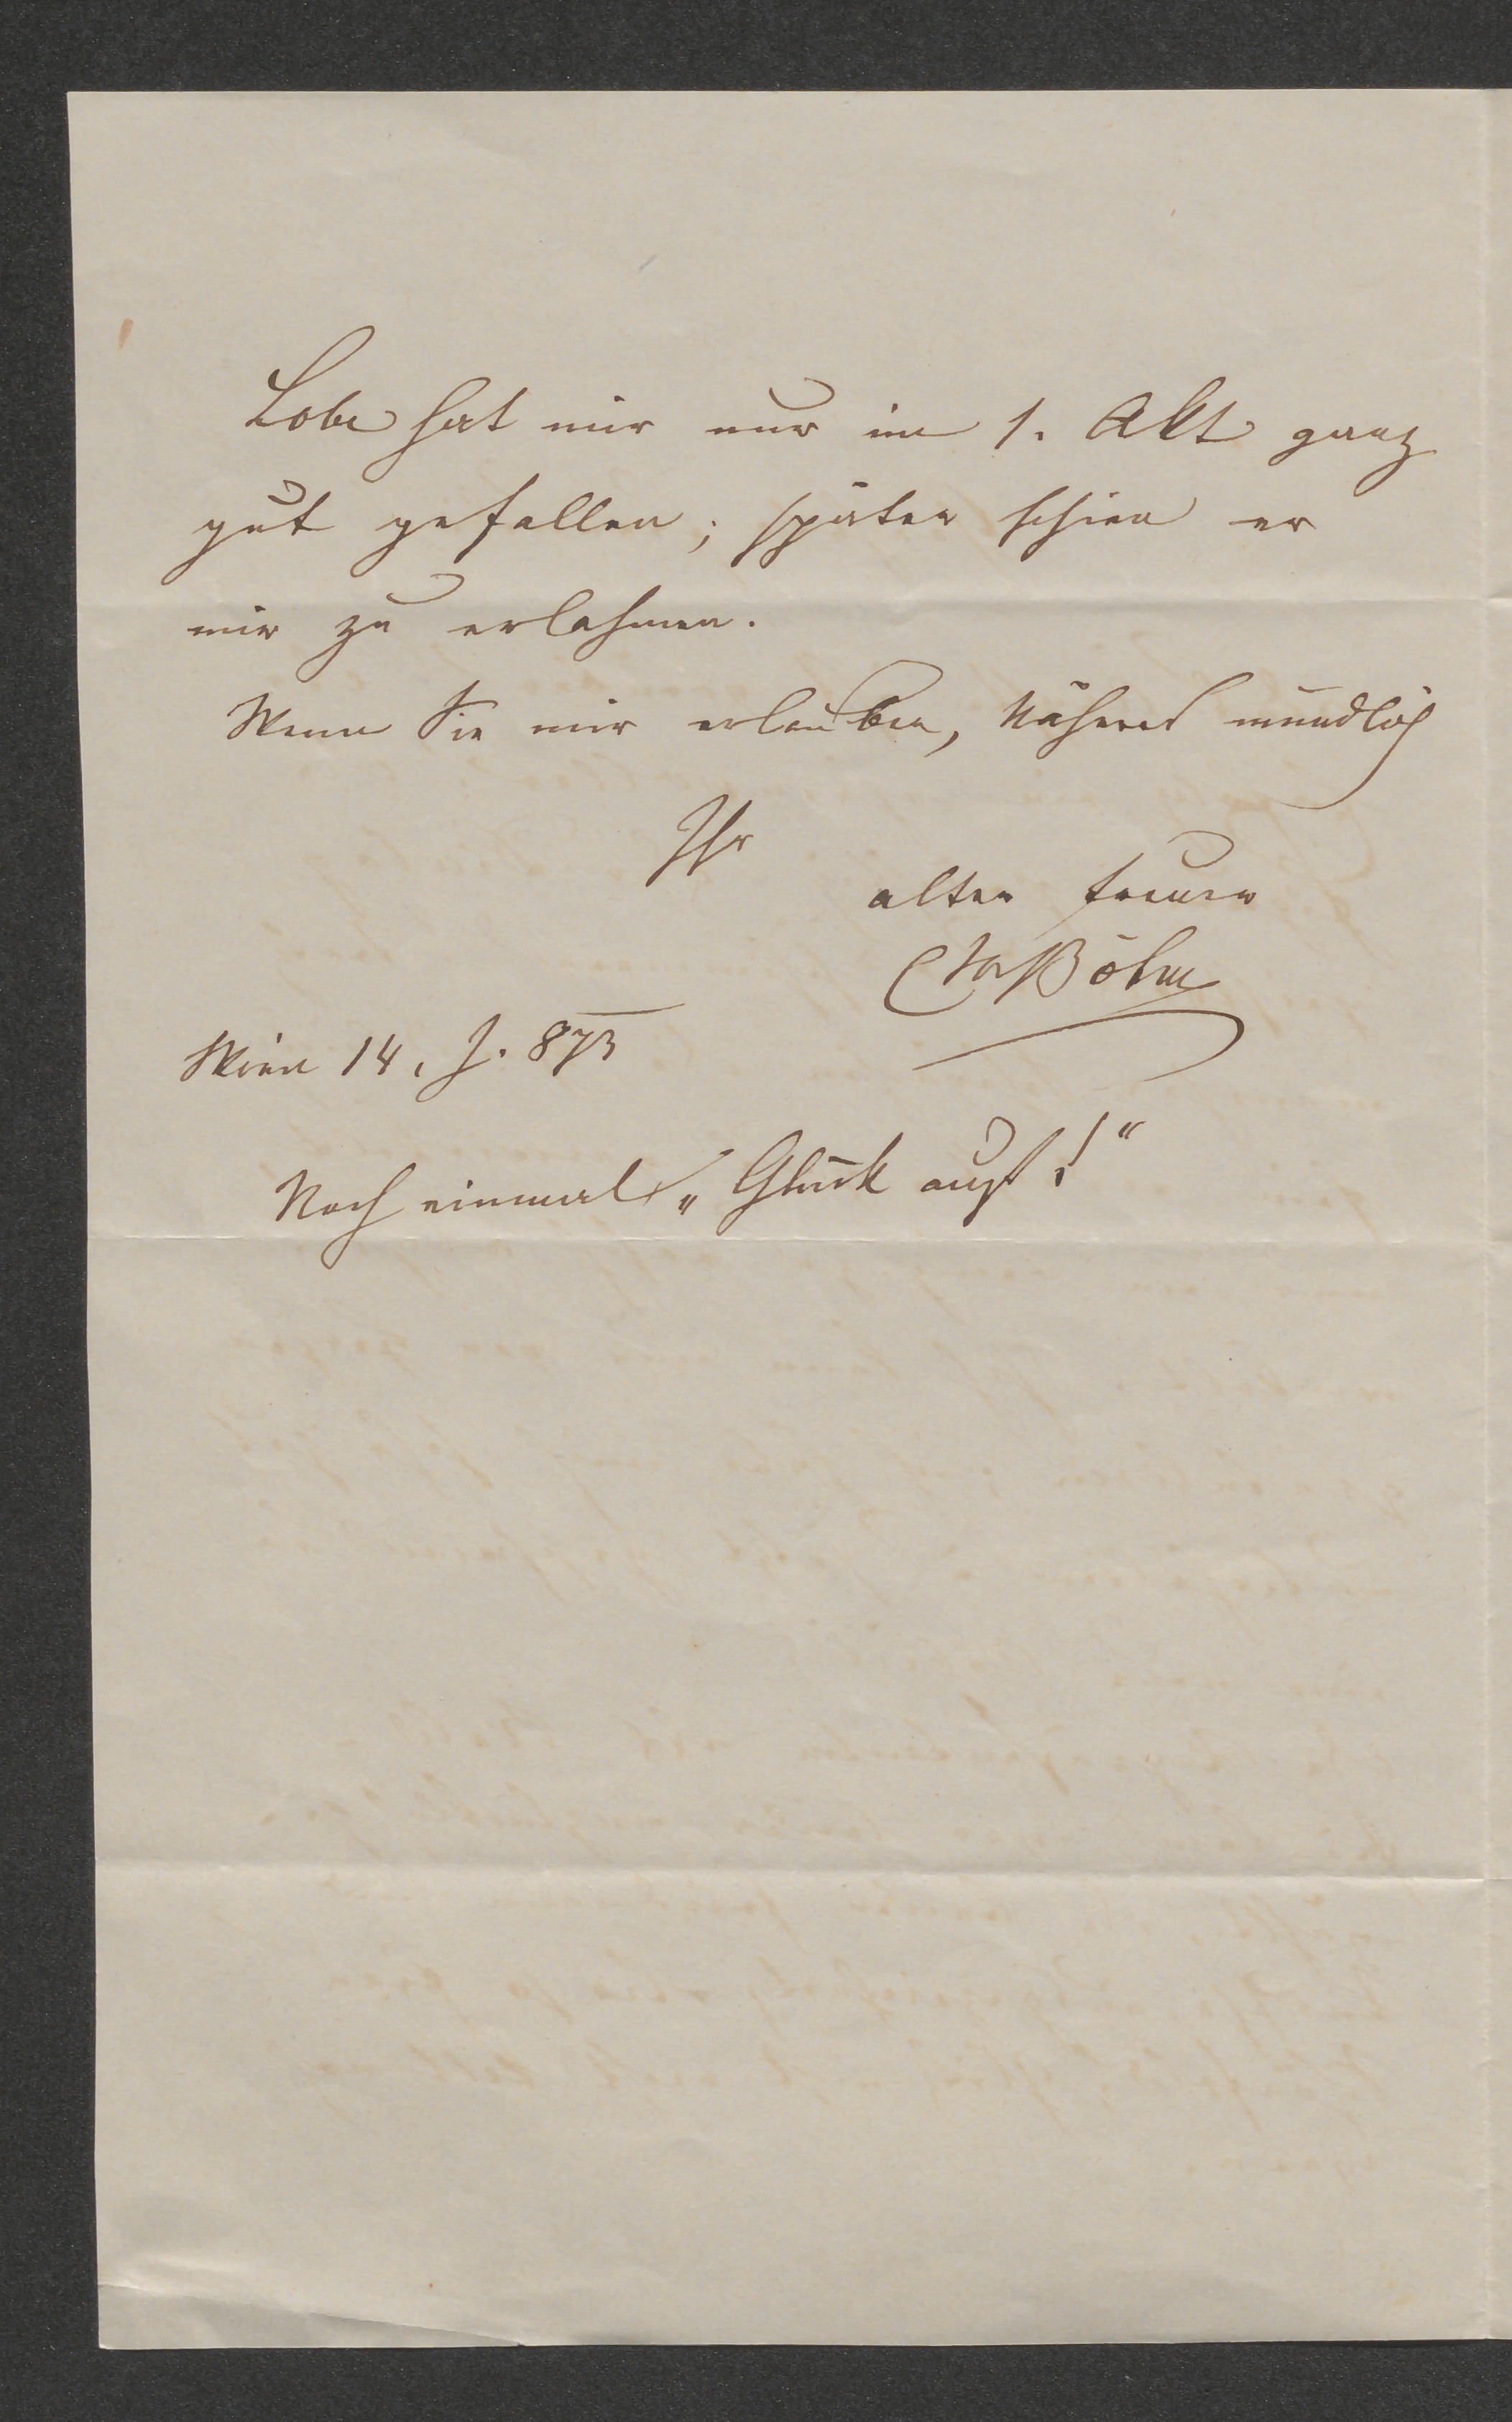 Lobe hat mir nur im 1. Akt ganz
gut gefallen; später schien er
mir zu erlahmen.
Wenn Sie mir erlauben, Näheres mündlich
Ihr
alter treuer
Böhm
Wien 14. J. 873
Noch einmal „Glück auf!“